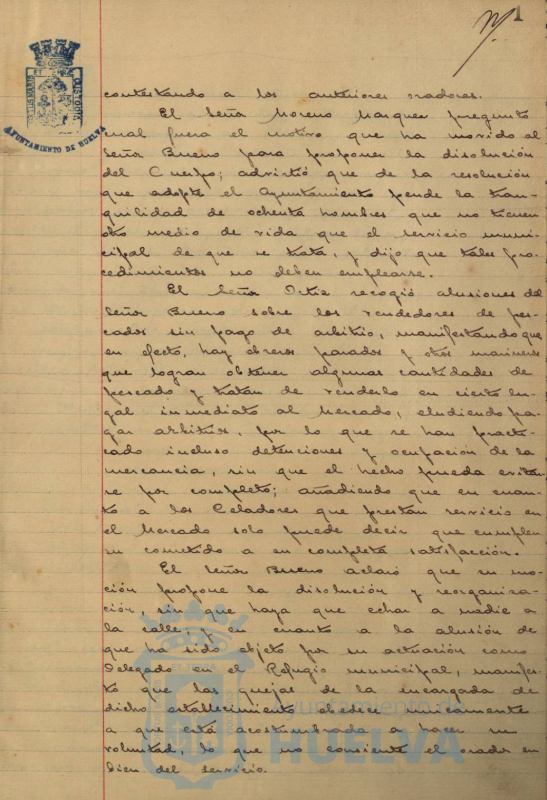 1
contestando a los anteriores oradores.
El Señor Moreno Marquez preguntó
cual fuera el motivo que ha movido al
Señor Bueno para proponer la disolución
del Cuerpo; advirtió que de la resolución
que adopte el Ayuntamiento pende la tran-
quilidad de ochenta hombres que no tienen
otro medio de vida que el servicio muni-
cipal de que se trata, y dijo que tales pro-
cedimientos no deben emplearse.
El Señor Ortiz recogió alusiones del
Señor Bueno sobre los vendedores de pes-
cados sin pago de arbitrio, manifestando que
en efecto, hay obreros parados y otros marineros
que logran obtener algunas cantidades de
pescado y tratan de venderlo en cierto lu-
gar inmediato al Mercado, eludiendo pa-
gar arbitrios, por lo que se han practi-
cado incluso detenciones y ocupación de la
mercancia, sin que el hecho pueda evitar-
se por completo; añadiendo que en cuan-
to a los Celadores que prestan servicio en
el Mercado solo puede decir que cumplen
su cometido a su completa satisfacción.
El Señor Bueno aclaró que su mo-
ción propone la disolución y reorganiza-
ción, sin que haya que echar a nadie a
la calle; y en cuanto a la alusión de
que ha sido objeto por su actuación como
Delegado en el Refugio municipal, manifes-
tó que las quejas de la encargada de
dicho establecimiento obedece unicamente
a que está acostumbrada a hacer su
voluntad, lo que no consiente el orador en
bien del servicio.
AYUNTAMIENTO DE HUELVA
Ayuntamiento de
HUELVA